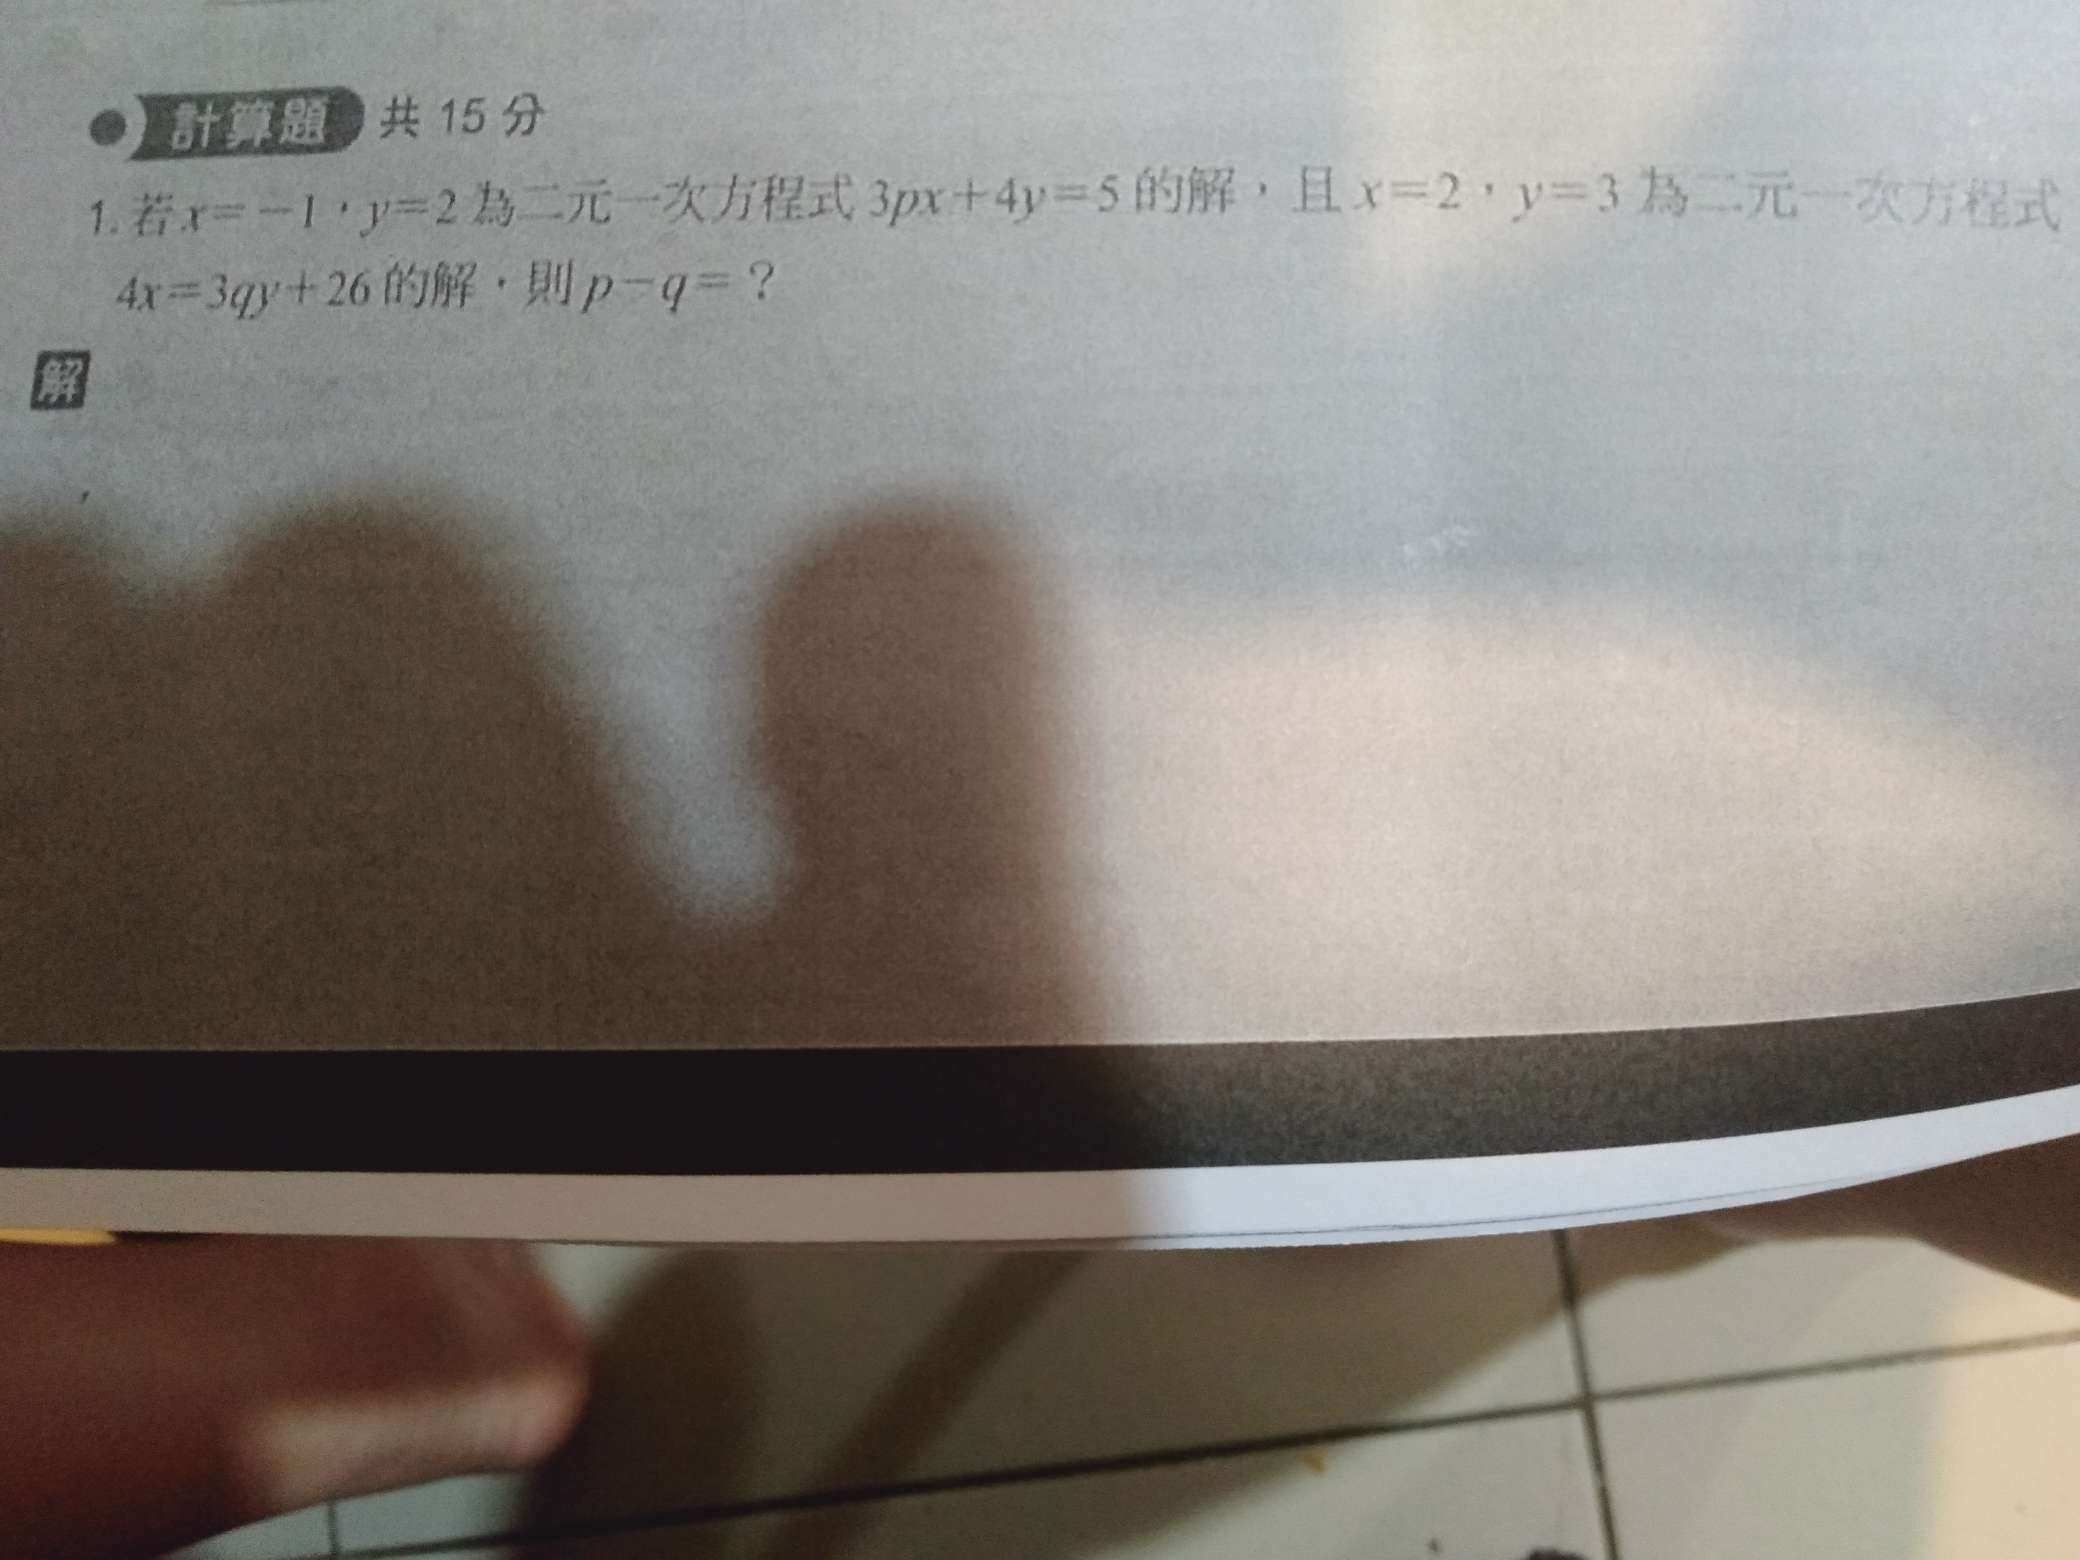 計算題 共 15 分
1. 若 x=-1，y=2 為二元一次方程式 3px+4y=5 的解，且 x=2，y=3 為二元一次方程式
4x=3qy+26 的解，則 p-q=？
解